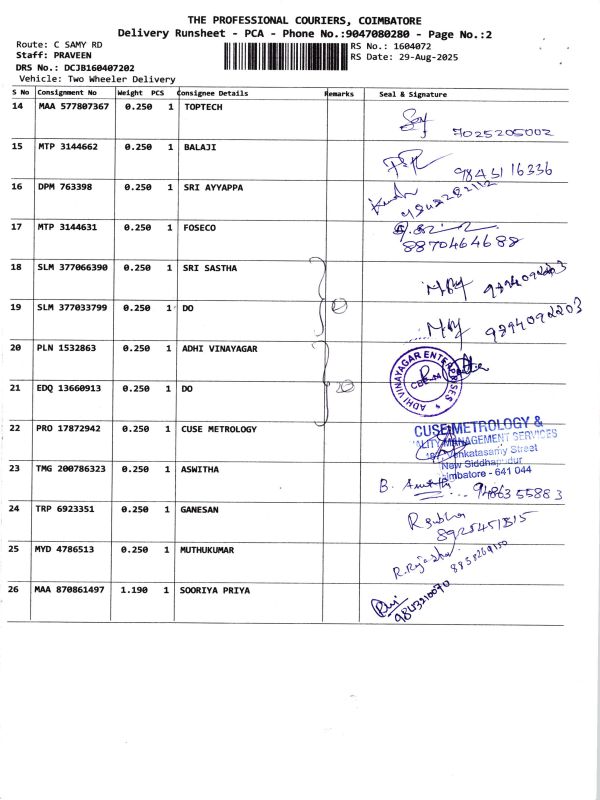 THE PROFESSIONAL COURIERS, COIMBATORE
Delivery Runsheet - PCA - Phone No.:9047080280 - Page No.:2
Route: C SAMY RD
RS No.: 1604072
Staff: PRAVEEN
RS Date: 29-Aug-2025
DRS No.: DCJB160407202
Vehicle: Two Wheeler Delivery
S No Consignment No Weight PCS Consignee Details Remarks Seal & Signature
14 MAA 577807367 0.250 1 TOPTECH
7025205002
15 MTP 3144662 0.250 1 BALAJI
9843116336
16 DPM 763398 0.250 1 SRI AYYAPPA
17 MTP 3144631 0.250 1 FOSECO
8870464688
18 SLM 377066390 0.250 1 SRI SASTHA
19 SLM 377033799 0.250 1 DO
9394092203
20 PLN 1532863 0.250 1 ADHI VINAYAGAR
ADHI VINAYAGAR ENTERPRISES
21 EDQ 13660913 0.250 1 DO
22 PRO 17872942 0.250 1 CUSE METROLOGY
CUSE METROLOGY &
QUALITY MANAGEMENT SERVICES
Venkatasamy Street
New Siddhapudur
Coimbatore - 641 044
23 TMG 200786323 0.250 1 ASWITHA
B. 9486355883
24 TRP 6923351 0.250 1 GANESAN
R subha
25 MYD 4786513 0.250 1 MUTHUKUMAR
26 MAA 870861497 1.190 1 SOORIYA PRIYA
9843210090